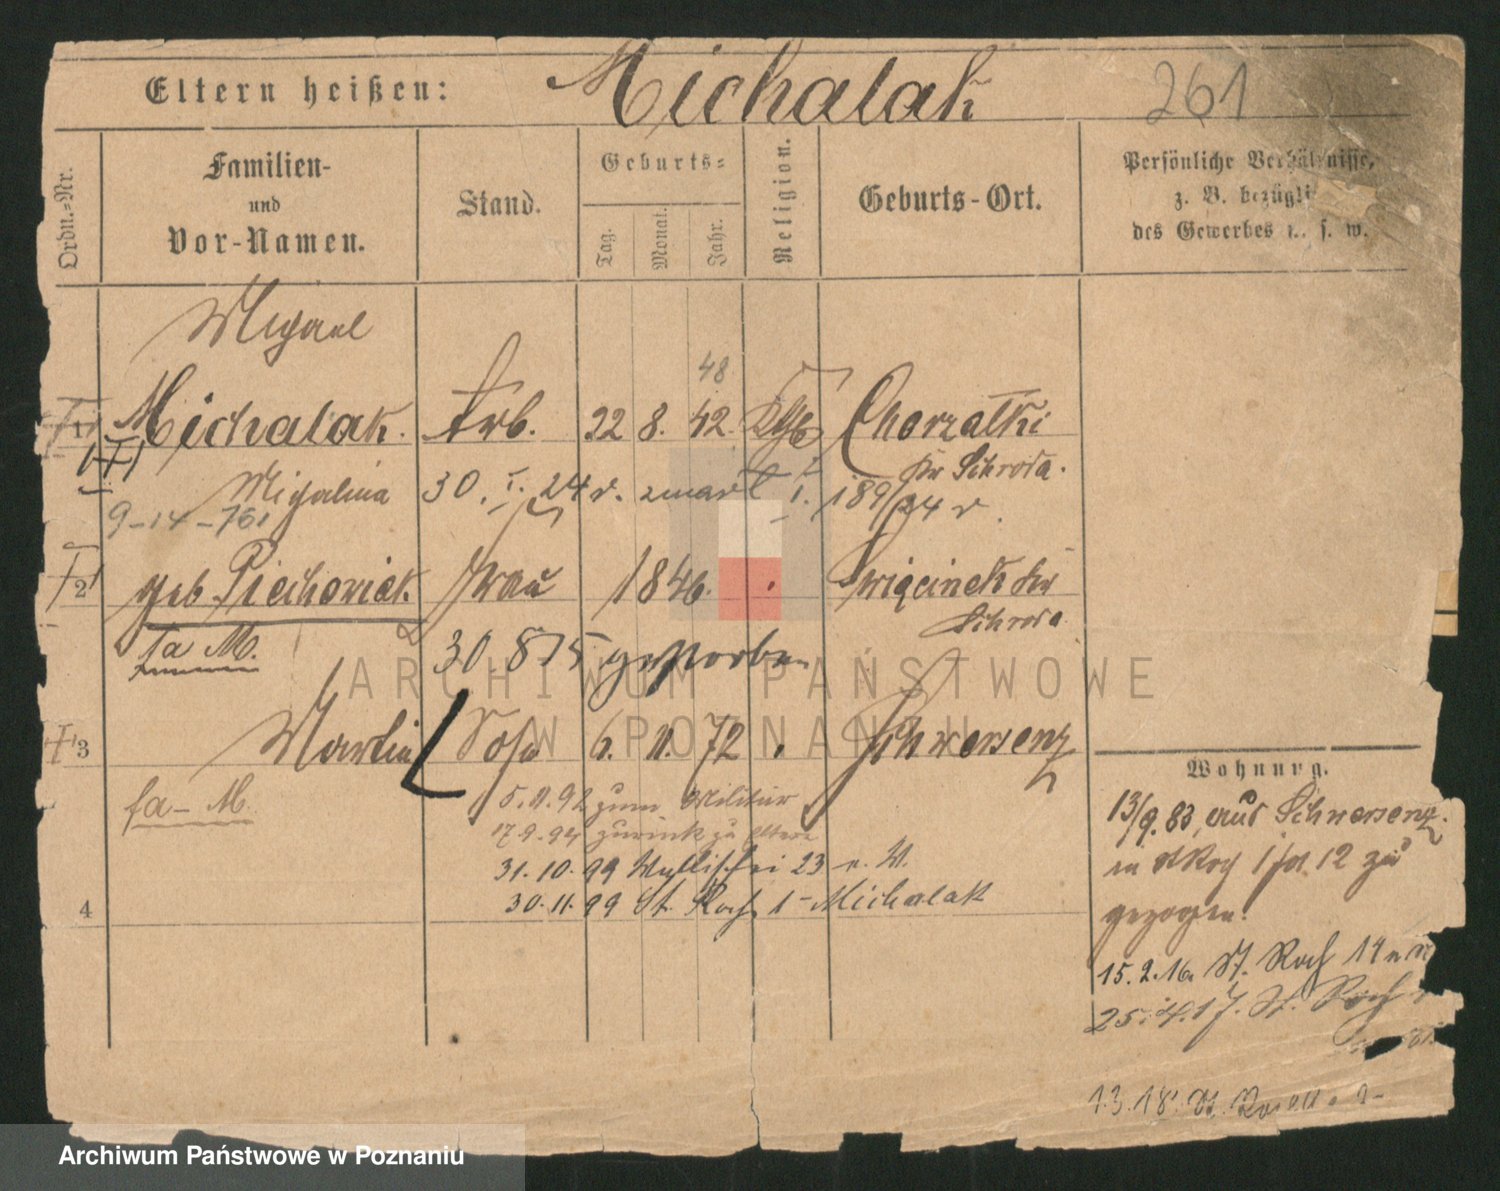 Eltern heißen: Michalak 261
Ordn.-Nr.
Familien-
und
Vor-Namen.
Stand.
Geburts-
Tag.
Monat.
Jahr.
Religion.
Geburts-Ort.
Persönliche Verhältnisse,
z. B. bezügli
des Gewerbes u. s. w.
Michael
48
1 Michalak. Arb. 22 8. 42. Chorzalki
Kr Schroda.
Michalina 30. I. 24 r. zmarł
9-14-761
2 geb. Piechowiak Frau 1846. Swięcinek Kr
Schroda
fa M. 30. 8 75 gestorben
3 Martin Sohn 6. 11. 72 Schwersenz
fa - M.
5.11.92 zum Militär
17.9.94 zurück zu Eltern
31.10.99 23
4 30.11.99 St. Roch 1 - Michalak
Wohnung.
13/9.83 aus Schwersenz.
in St Roch 12 zu
gezogen.
15.2.16. St. Roch 14
25.4.17. St. Roch
1.3.18. St.
ARCHIWUM PAŃSTWOWE
W POZNANIU
Archiwum Państwowe w Poznaniu